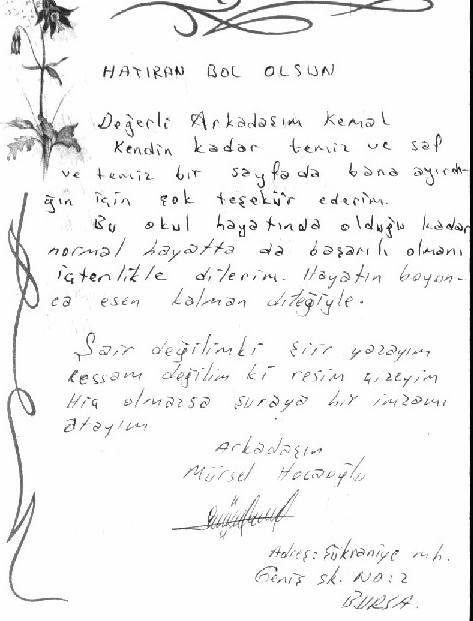 HATIRAN BOL OLSUN
Değerli Arkadaşım Kemal
Kendin kadar temiz ve saf
ve temiz bir sayfada bana ayırdı-
ğın için çok teşekür ederim.
Bu okul hayatında olduğu kadar
normal hayatta da başarılı olmanı
içtenlikle dilerim. Hayatın boyun-
ca esen kalman dileğiyle.
Şair değilimki şiir yazayım
Ressam değilim ki resim çizeyim
Hiç olmazsa şuraya bir imzamı
atayım
Arkadaşın
Mürsel Hocaoğlu
Adres: Şükraniye mh.
Geniş sk. NO: 2
BURSA.